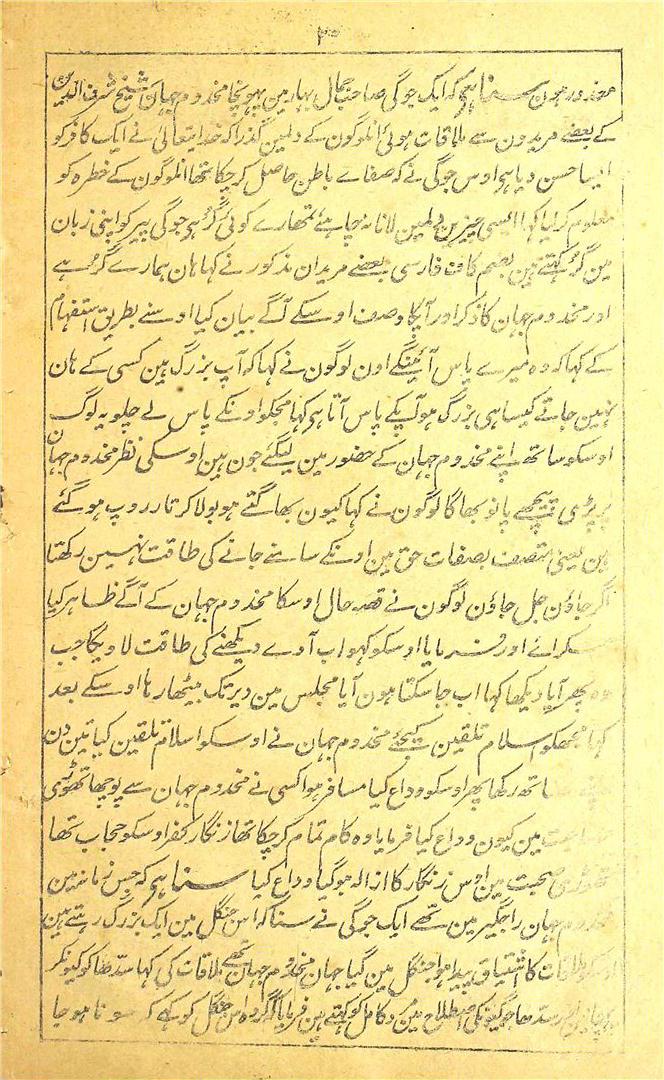 ۳۰
معذور ہون سنا ہی کہ ایک جوگی صاحب جمال بہار مین پہونچا مخدوم جہان شیخ شرف الدین
کے بعضے مریدون سے ملاقات ہوئی انلوگون کے دلمین گذرا کہ خدایتعالیٰ نے ایک کافر کو
ایسا حسن دیا ہی اوس جوگی نے کہ صفاے باطن حاصل کر چکا تھا انلوگون کے خطرہ کو
معلوم کر لیا کہا ایسی چیزین دلمین لانا نہ چاہئے تمھارے کوئی گرُ ہی جوگی پیر کو اپنی زبان
مین گرُ کہتے ہین بضم کاف فارسی بعضے مریدان مذکور نے کہا ہان ہمارے گرُ ہے
اور مخدوم جہان کا ذکر اور آپکا وصف اوسکے آگے بیان کیا اوسنے بطریق استفہام
کے کہا کہ وہ میرے پاس آئینگے اون لوگون نے کہا کہ آپ بزرگ ہین کسی کے ہان
نہین جاتے کیسا ہی بزرگ ہو آپکے پاس آتا ہی کہا مجکو اونکے پاس لے چلو یہ لوگ
اوسکو ساتھ اپنے مخدوم جہان کے حضور مین لیگئے جون ہین اوسکی نظر مخدوم جہان
پر پڑی پیچھے پانو بھاگا لوگون نے کہا کیون بھاگتے ہو بولا کرتار روپ ہو گئے
ہین یعنی متصف بصفات حق مین اونکے سامنے جانے کی طاقت نہین رکھتا
اگر جاؤن جل جاؤن لوگون نے قصہ حال اوسکا مخدوم جہان کے آگے ظاہر کیا
مسکرائے اور فرمایا اوسکو کہو اب آوے دیکھنے کی طاقت لاویگا جب
وہ پھر آیا دیکھا کہا اب جا سکتا ہون آیا مجلس مین دیر تک بیٹھا رہا اوسکے بعد
کہا مجھکو اسلام تلقین کیجئے مخدوم جہان نے اوسکو اسلام تلقین کیا تین دن
اپنے ساتھ رکھا پھر اوسکو وداع کیا مسافر ہوا کسی نے مخدوم جہان سے پوچھا تھوڑی
مین کیون وداع کیا فرمایا وہ کام تمام کر چکا تھا زنگار کفر اوسکو حجاب تھا
تھوڑی صحبت مین اوس زنگار کا ازالہ ہو گیا وداع کیا سنا ہی کہ جس زمانہ مین
مخدوم جہان راجگیر مین تھے ایک جوگی نے سنا کہ اس جنگل مین ایک بزرگ رہتے ہین
اوسکو ملاقات کا اشتیاق پیدا ہوا جنگل مین گیا جہان مخدوم جہان تھے ملاقات کی کہا سدھا کو کیونکر
سدھا جوگیونکی اصطلاح مین مرد کامل کو کہتے ہین فرمایا اگر وہ اس جنگل کو کہے کہ سونا ہو جا